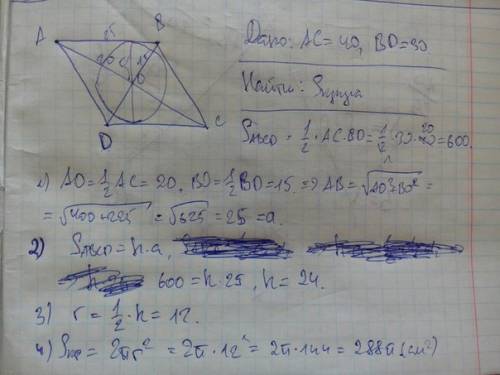 A 25 B
20 15
O
D C
Дано: AC=40, BD=30
Найти: Sкруга
SABCD = 1/2 · AC · BD = 1/2 · 30 · 40 = 600.
20
1) AO = 1/2 AC = 20, BO = 1/2 BD = 15. => AB = √AO²+BO² =
= √400+225 = √625 = 25 = a.
2) SABCD = h·a,
600 = h · 25, h = 24.
3) r = 1/2 · h = 12.
4) Sкр = 2πr² = 2π · 12² = 2π · 144 = 288π (см²)